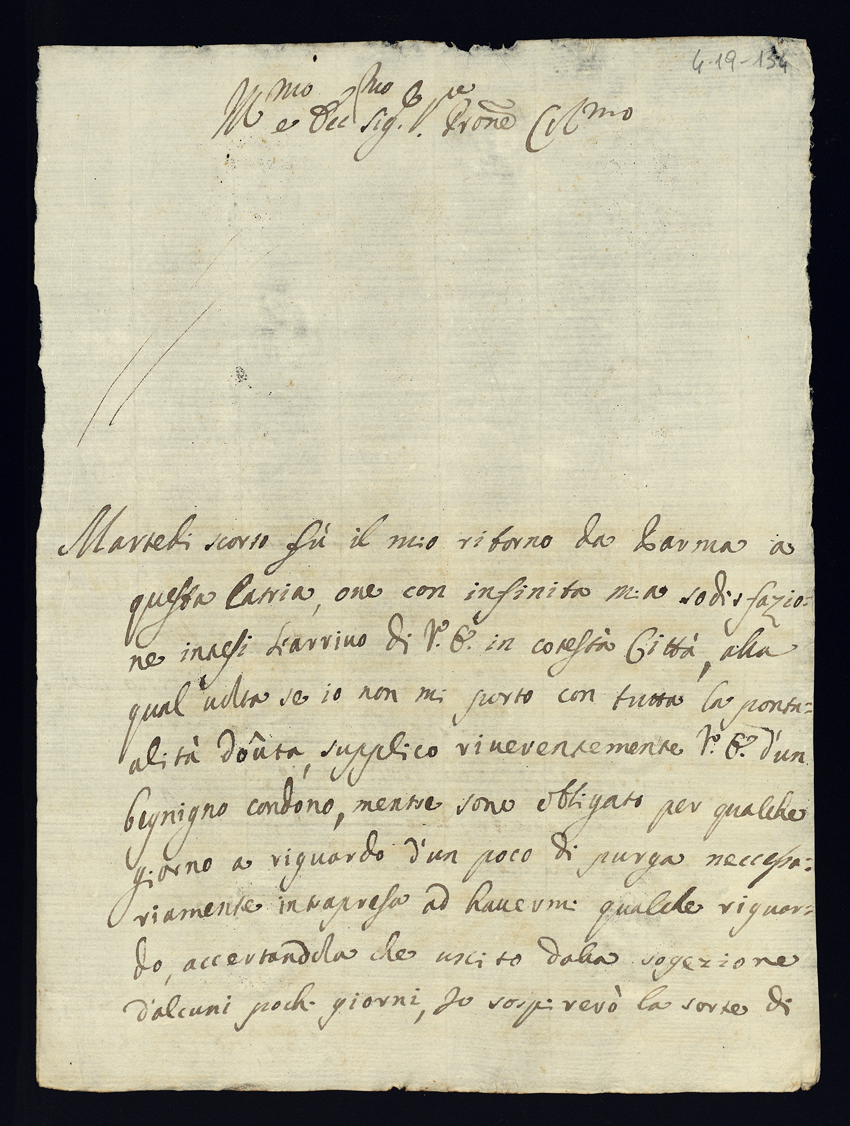 4-19-134
Ill.mo e Ecc.mo Sig.r Pron̄e Col.mo
Martedi scorso fù il mio ritorno da Parma a
questa Patria, oue con infinita mia sodisfazio=
ne intesi l'arriuo di V.ª E.ª in cotesta Città, alla
qual uolta se io non mi porto con tutta la pontu=
alità dôuta, supplico riuerentemente V.ª E.ª d'un
begnigno condono, mentre sono obligato per qualche
giorno a riguardo d'un poco di purga neccessa=
riamente intrapresa ad hauermi qualche riguar=
do, accertandola che uscito dalla sogezione
d'alcuni pochi giorni, Io sospirerò la sorte di